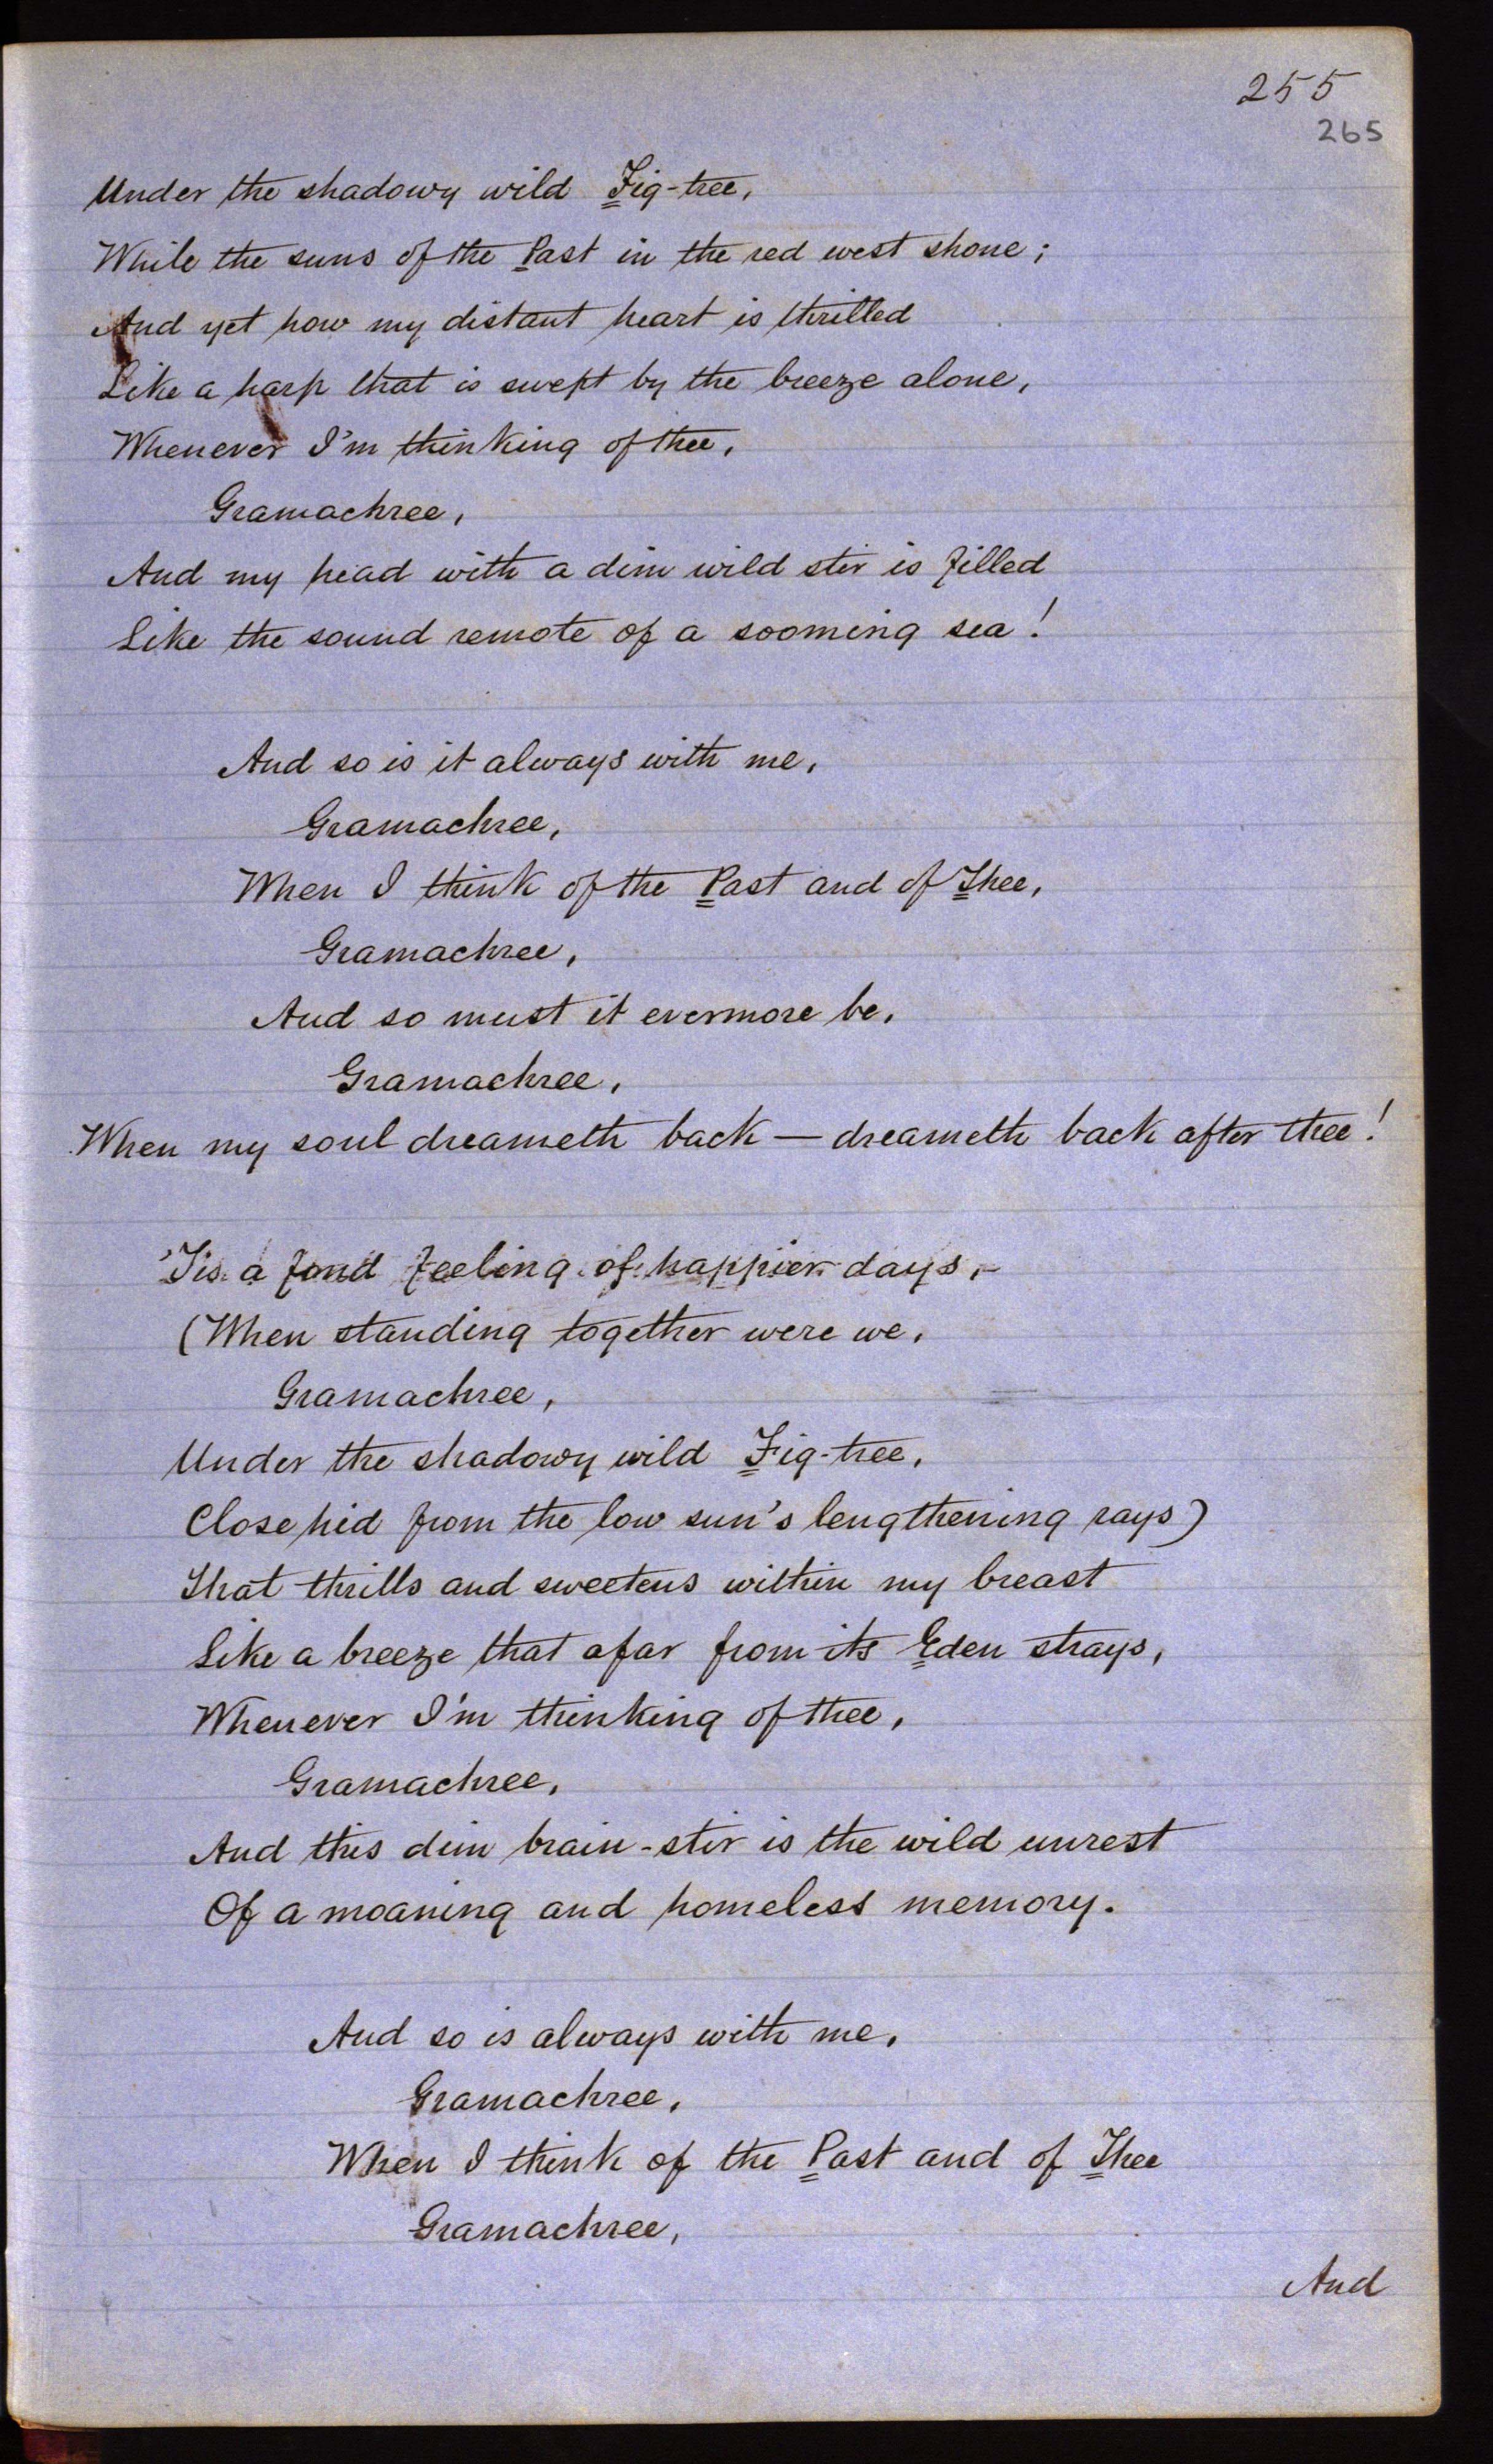 255
265
Under the shadowy wild Fig-tree,
While the suns of the Past in the red west shone;
And yet how my distant heart is thrilled
Like a harp that is swept by the breeze alone,
Whenever I'm thinking of thee,
Gramachree,
And my head with a dim wild stir is filled
Like the sound remote of a sooming sea!
And so is it always with me,
Gramachree,
When I think of the Past and of Thee,
Gramachree,
And so must it evermore be,
Gramachree,
When my soul dreameth back — dreameth back after thee!
'Tis a fond feeling of happier days,
(When standing together were we,
Gramachree,
Under the shadowy wild Fig-tree,
Close hid from the low sun's lengthening rays)
That thrills and sweetens within my breast
Like a breeze that afar from its Eden strays,
Whenever I'm thinking of thee,
Gramachree,
And this dim brain-stir is the wild unrest
Of a moaning and homeless memory.
And so is always with me,
Gramachree,
When I think of the Past and of Thee
Gramachree,
And